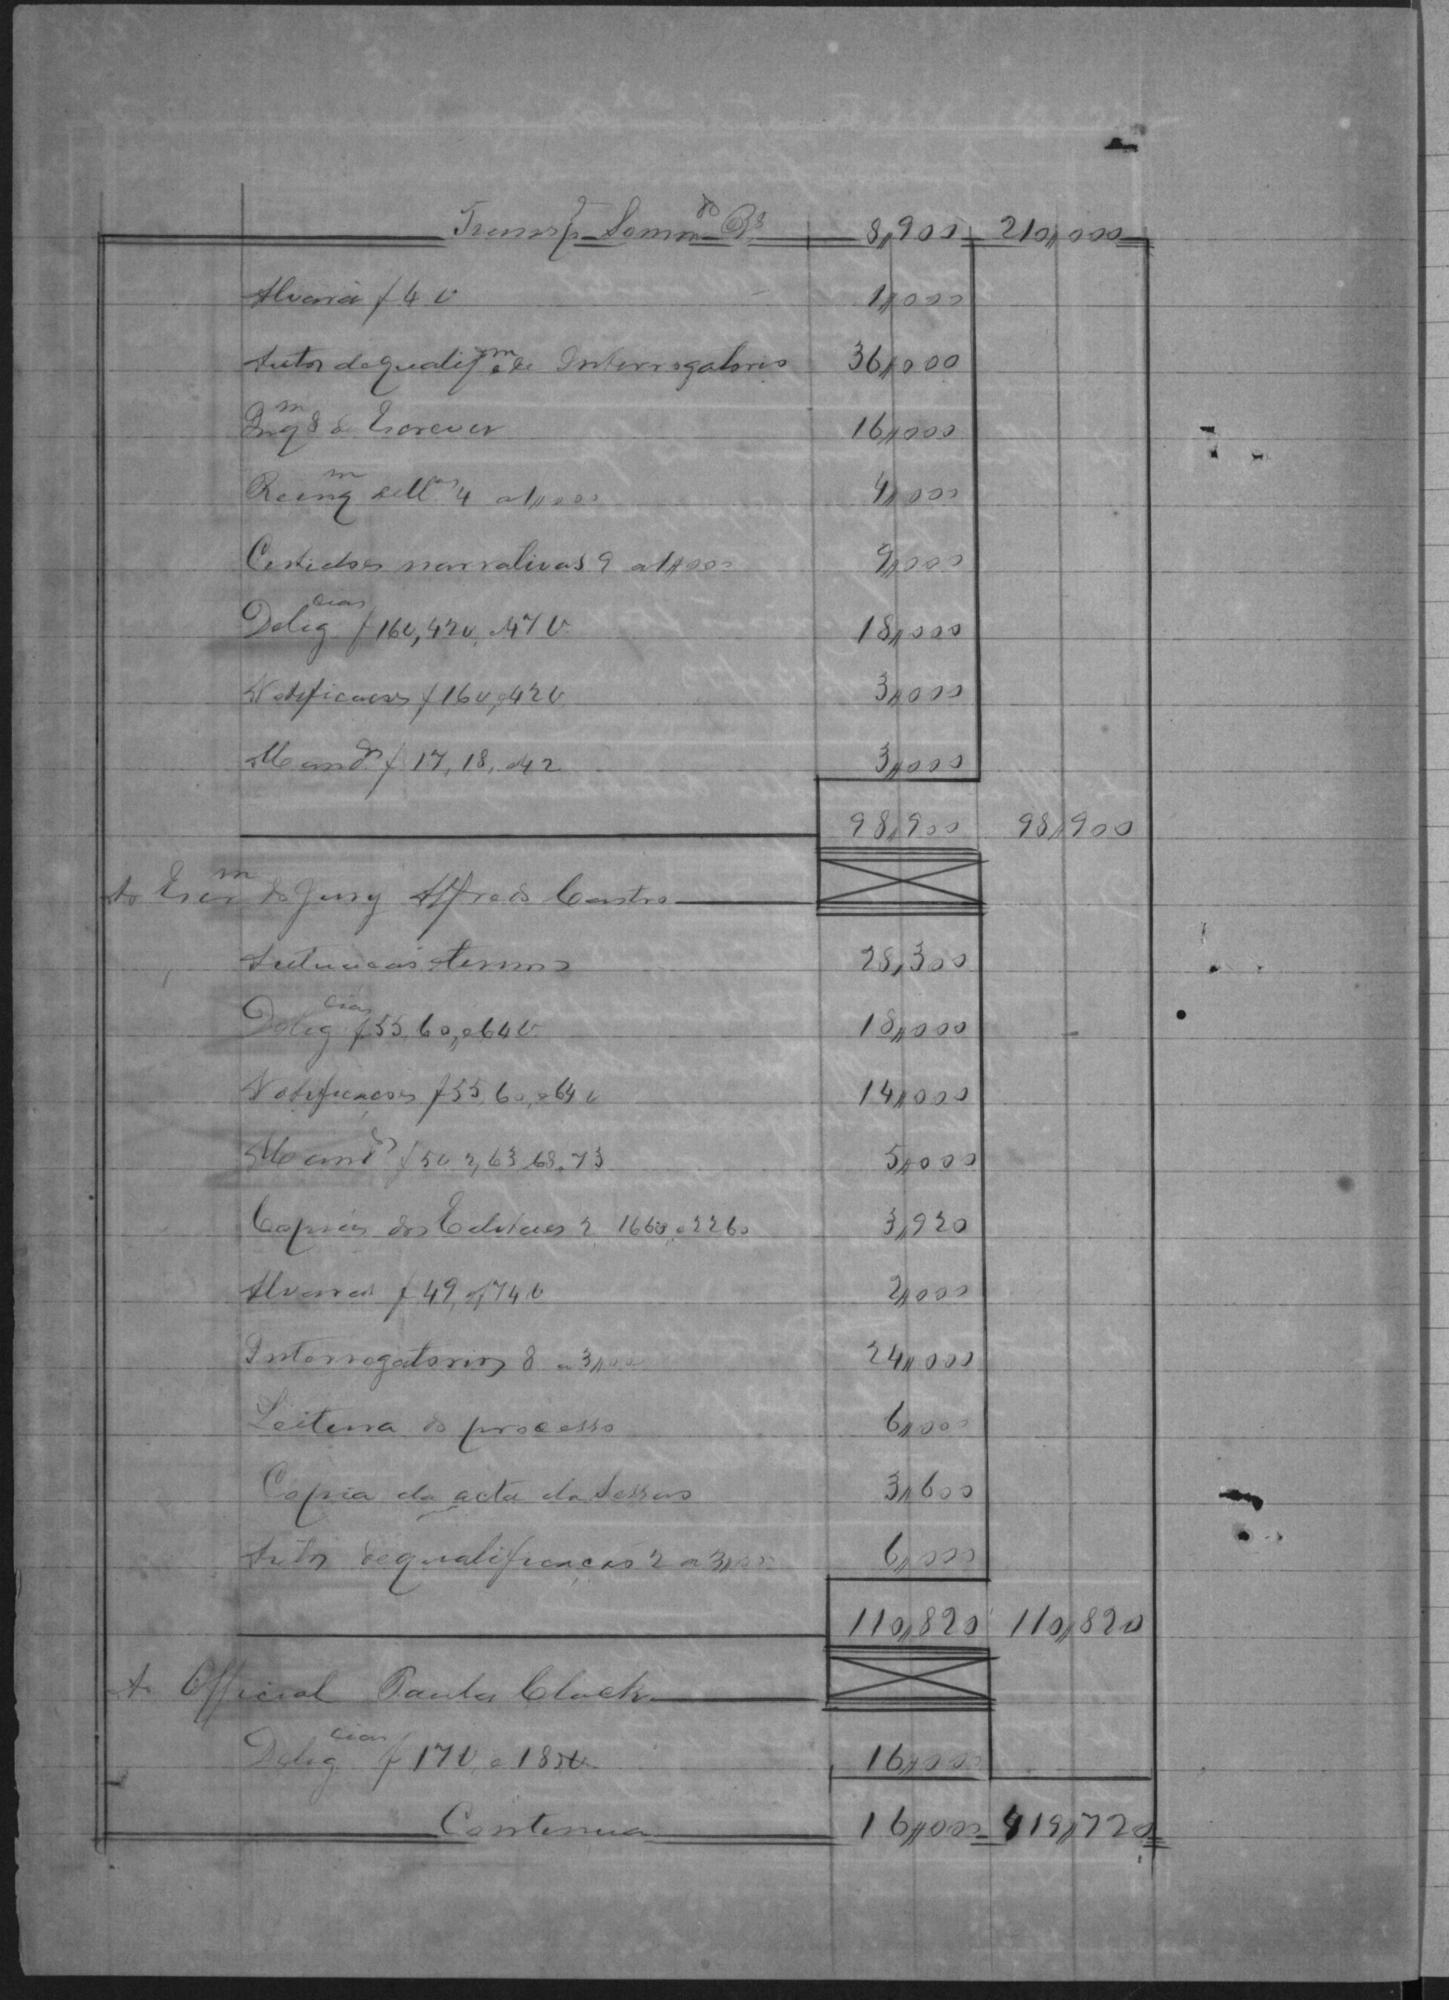 Transp.e Somm.do Rs 8,,900 210,,000
Alvará f 4 v 1,,000
Autos de qualif.m e de Interrogatorio 36,,000
Inq.m 8 a Escrever 16,,000
9,,000
Certidões narrativas 9 a 1,,000 9,,000
Delig.cias f 16v, 42v, e 47 v 18,,000
Notificações f 16v, e 42v 3,,000
Mand.os f 17, 18, e 42 3,,000
98,,900 98,,900
Ao Escr.m do Jury Alfredo Castro
Autuação e termos 28,300
Delig.cias f 55, 60, e 64 v 18,,000
Notificações f 55, 60, e 64 v 14,,000
Mand.os 63, 68, 73 5,,000
Copias dos Editaes 2 1660, e 2260 3,,920
Alvarás f 49, e 74 v 2,,000
Interrogatorios 8 a 3,,000 24,,000
Leitura do processo 6,,000
Copia da acta da Sessão 3,,600
Autos de qualificação 2 a 3,,000 6,,000
110,,820 110,,820
Ao Official Paulo
Delig.cias f 17 v, e 18 16,,000
Continua 16,,000 419,,720